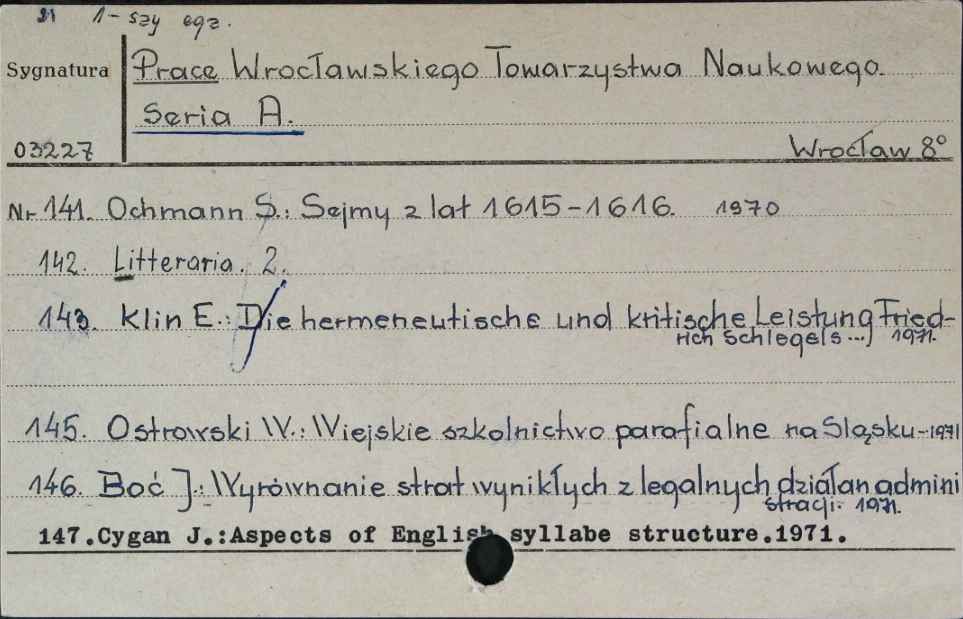 21 1-szy egz.
Sygnatura Prace Wrocławskiego Towarzystwa Naukowego.
Seria A.
03227 Wrocław 8°
Nr 141. Ochmann S.: Sejmy z lat 1615-1616. 1970
142. Litteraria. 2.
143. Klin E.: Die hermeneutische und kritische Leistung Fried-
rich Schlegels...) 1971.
145. Ostrowski W.: Wiejskie szkolnictwo parafialne na Śląsku-1971
146. Boć J.: Wyrównanie strat wynikłych z legalnych działan admini
stracji. 1971.
147.Cygan J.:Aspects of English syllabe structure.1971.